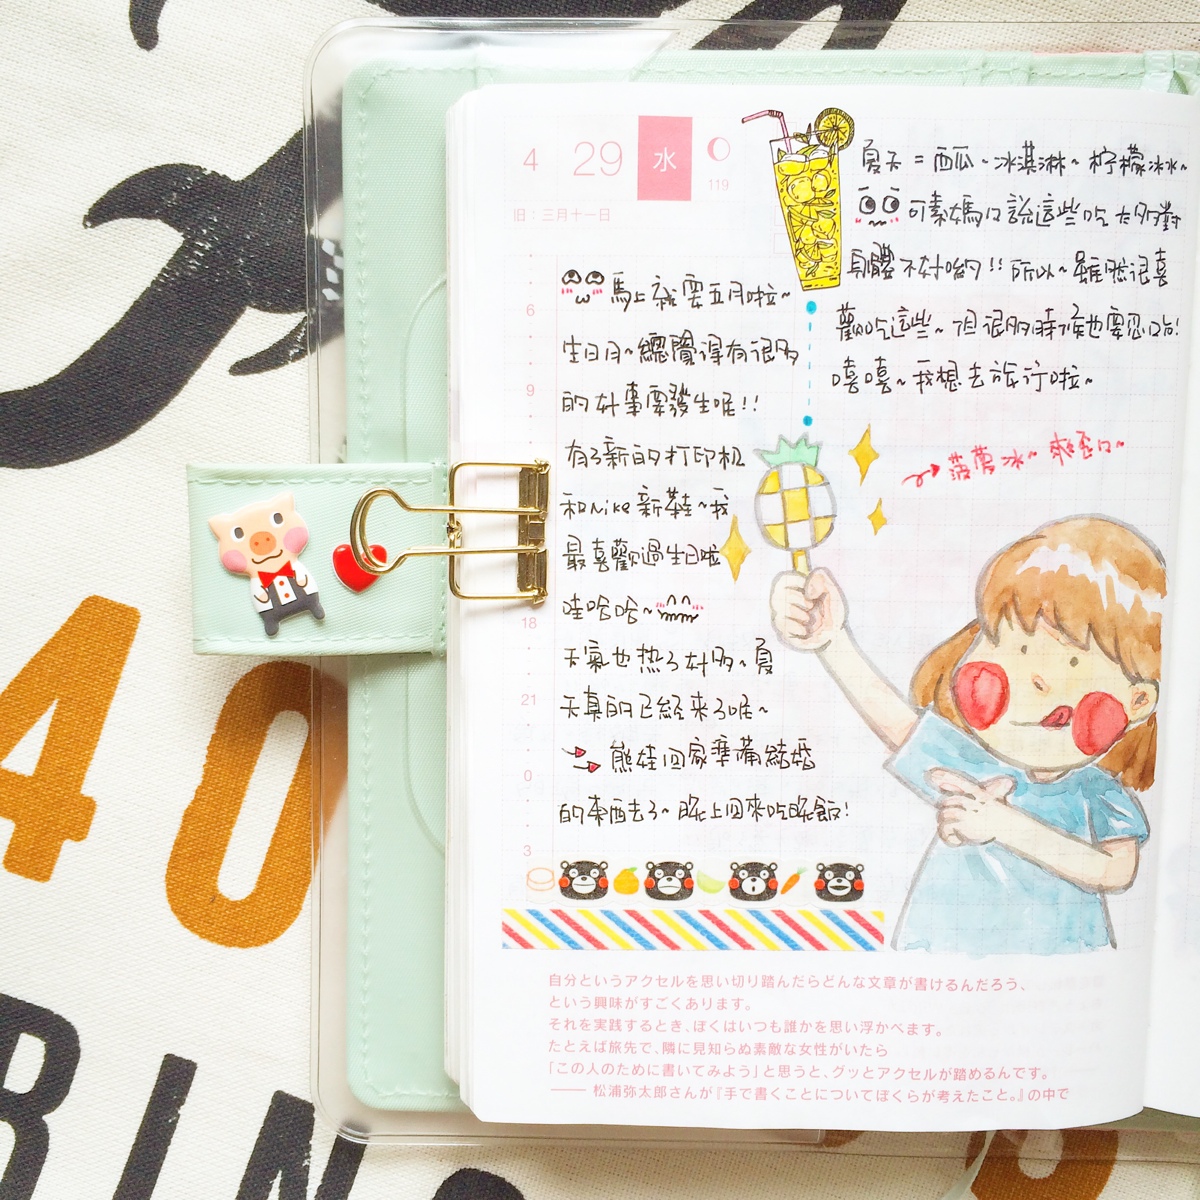 4 29 水
119
旧：三月十一日
馬上就要五月啦~
生日月~總覺得有很多
的好事要發生呢!!
有了新的打印机
和Nike新鞋~我
最喜歡過生日啦
哇哈哈~
天氣也热了好多~夏
天真的已經來了呢~
熊娃回家準備結婚
的東西去了~晚上回來吃晚飯!
夏天=西瓜~冰淇淋~柠檬冰水~
可素媽口說這些吃太多對
身體不好喲!!所以~雖然很喜
歡吃這些~但很多時候也要忍口馬!
嘻嘻~我想去旅行啦~
菠蘿冰~爽歪口~
6
9
18
21
0
3
自分というアクセルを思い切り踏んだらどんな文章が書けるんだろう、
という興味がすごくあります。
それを実践するとき、ぼくはいつも誰かを思い浮かべます。
たとえば旅先で、隣に見知らぬ素敵な女性がいたら
「この人のために書いてみよう」と思うと、グッとアクセルが踏めるんです。
―― 松浦弥太郎さんが『手で書くことについてぼくらが考えたこと。』の中で
40